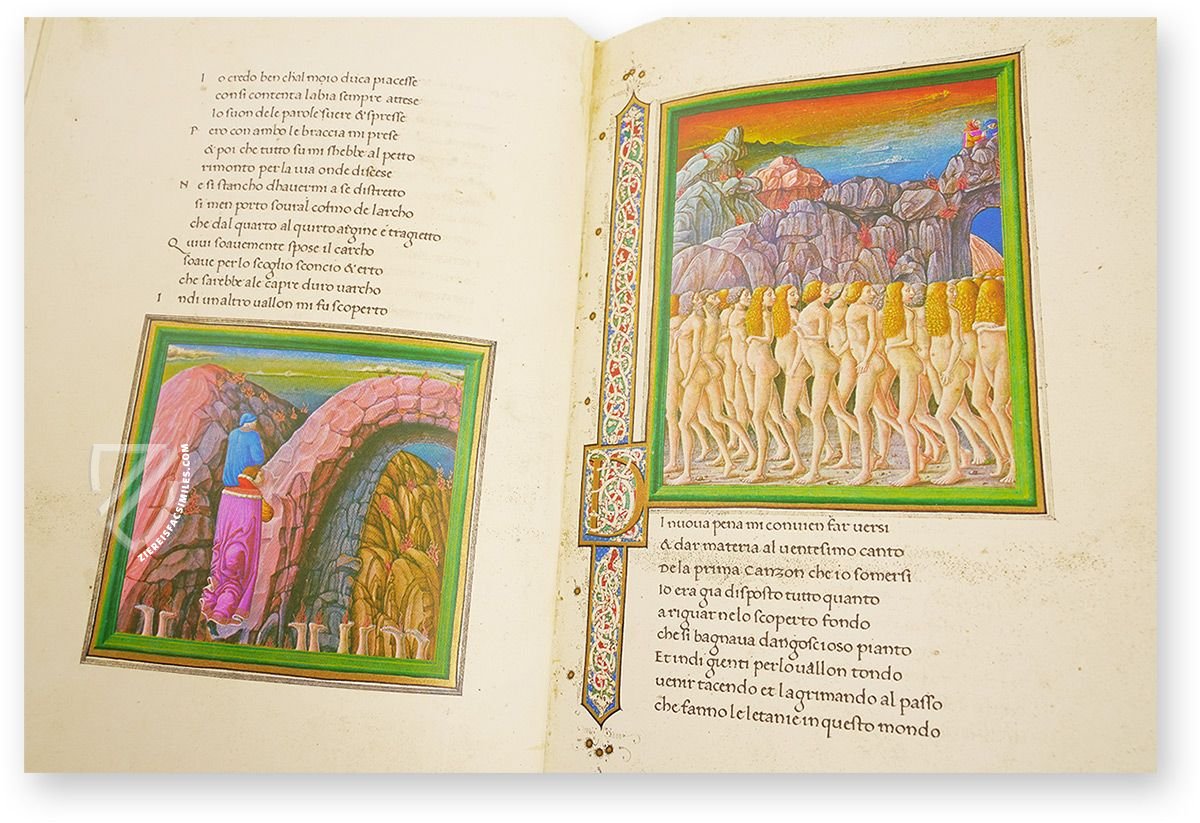 I o credo ben chal moio duca piacesse
con si contenta labia sempre attese
lo suon dele parole uere & spresse
P ero con ambo le braccia mi prese
& poi che tutto su mi shebbe al petto
rimonto per la uia onde discese
N e si stancho dhauermi a se distretto
si men porto soural colmo de larcho
che dal quarto al quinto argine e tragietto
Q uiui soauemente spose il carcho
soaue per lo scoglio sconcio & erto
che sarebbe ale capre duro uarcho
I ndi un altro uallon mi fu scoperto
ZIEREISFACSIMILES.COM
80
D I nuoua pena mi conuien far uersi
& dar materia al uentesimo canto
De la prima canzon che io somersi
Io era gia disposto tutto quanto
a riguar nelo scoperto fondo
che si bagnaua dangoscioso pianto
Et indi gienti per lo uallon tondo
uenir tacendo et lagrimando al passo
che fanno le letanie in questo mondo